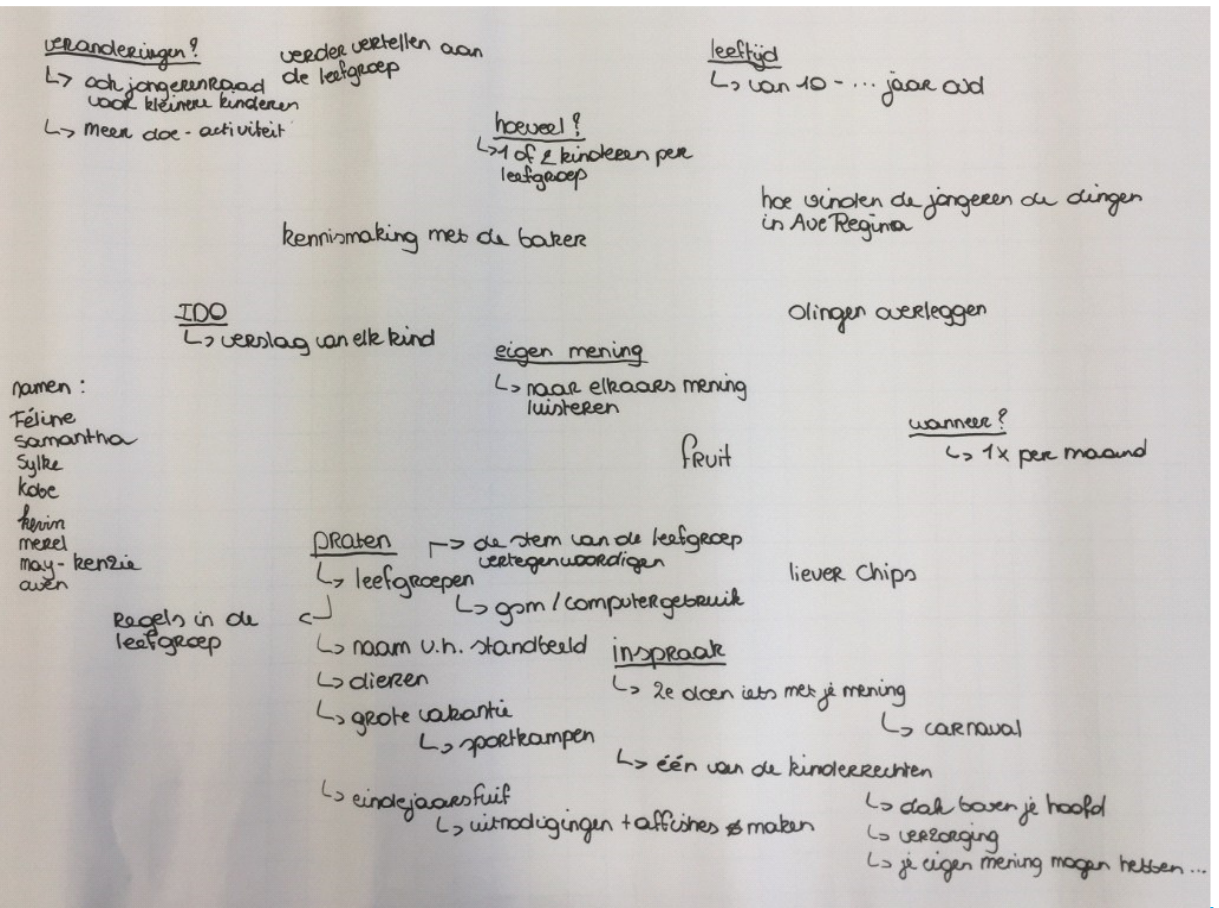 veranderingen?
↳ ook jongerenraad
voor kleinere kinderen
↳ meer doe-activiteit
verder vertellen aan
de leefgroep
leeftijd
↳ van 10 - ... jaar oud
hoeveel?
↳ 1 of 2 kinderen per
leefgroep
hoe vinden de jongeren de dingen
in Ave Regina
kennismaking met de baker
IDO
↳ verslag van elk kind
dingen overleggen
eigen mening
↳ naar elkaars mening
luisteren
namen :
Féline
Samantha
Sylke
kobe
kevin
merel
may-kenzie
aven
wanneer?
↳ 1x per maand
fruit
praten
→ de stem van de leefgroep
vertegenwoordigen
↳ leefgroepen
↳ gsm / computergebruik
liever chips
Regels in de
leefgroep
↳ naam v.h. standbeeld
↳ dieren
↳ grote vakantie
↳ sportkampen
↳ eindejaarsfuif
↳ uitnodigingen + affishes maken
inspraak
↳ ze doen iets met je mening
↳ carnaval
↳ één van de kinderrechten
↳ dak boven je hoofd
↳ verzorging
↳ je eigen mening mogen hebben ...